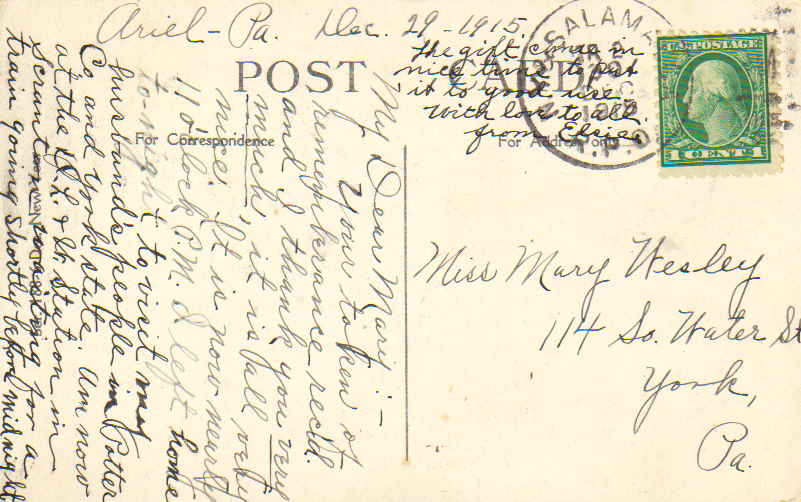 Ariel - Pa. Dec. 29 - 1915.
POST CARD
For Correspondence
For Address only
SALAMA
R.P.O.
U.S. POSTAGE
1 CENT 1
My Dear Mary :-
Your token of
remembrance rec'd.
and I thank you very
much, it is all very
nice. It is now nearly
11 o'clock P.M. I left home
to-night to visit my
husband's people in Potter
Co and York state. Am now
at the D. L. & W. Station in
Scranton waiting for a
train going shortly before midnight
The gift came in
nice time to put
it to good use.
With love to all.
from Elsie.
Miss Mary Wesley
114 So. Water St
York,
Pa.